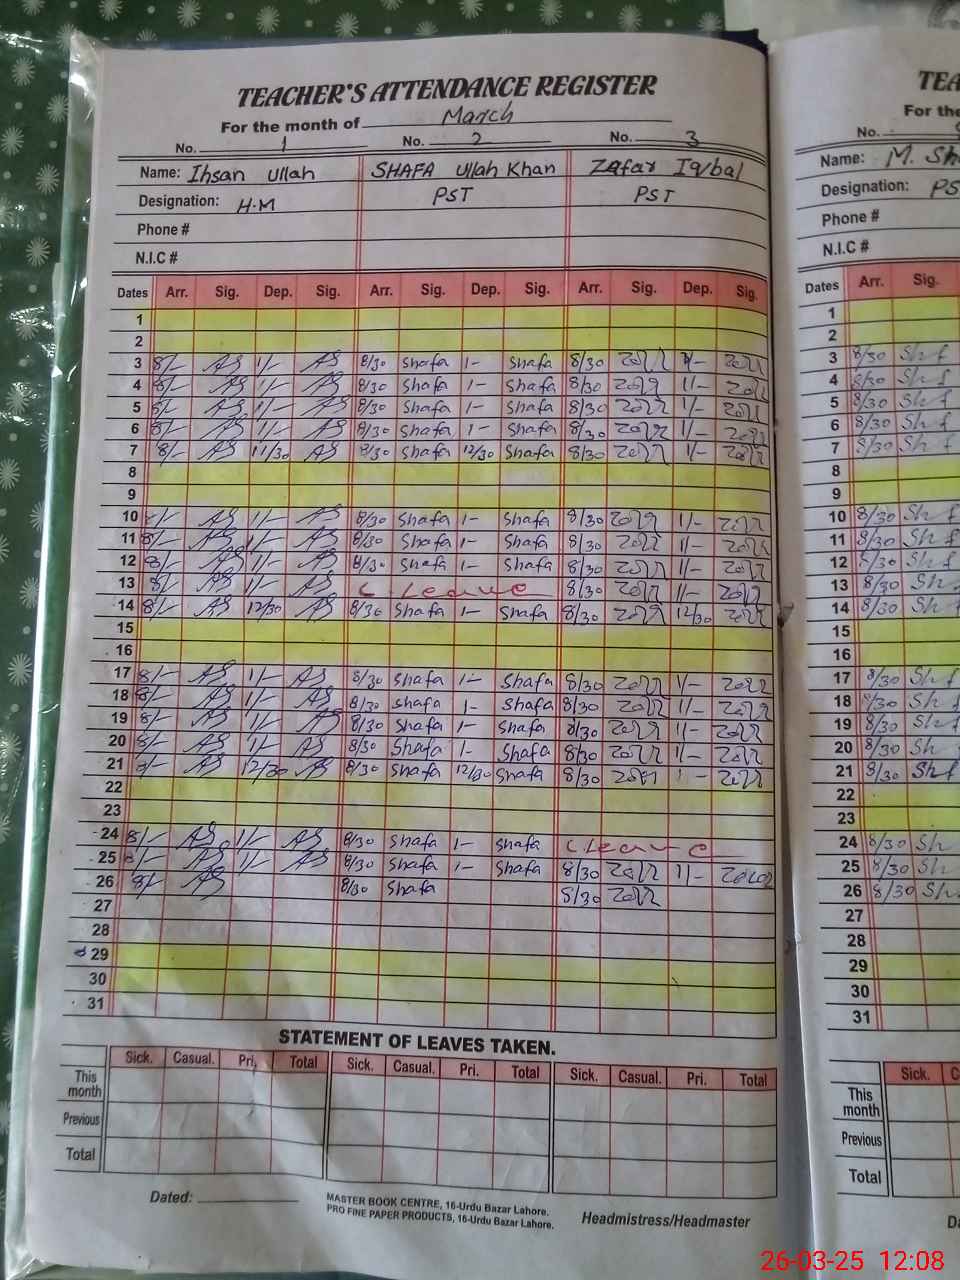 TEACHER'S ATTENDANCE REGISTER
For the month of March
No. 1 No. 2 No. 3
Name: Ihsan Ullah SHAFA Ullah Khan Zafar Iqbal
Designation: H.M PST PST
Phone #
N.I.C #
Dates Arr. Sig. Dep. Sig. Arr. Sig. Dep. Sig. Arr. Sig. Dep. Sig.
1
2
3 8/- 1/- 8/30 Shafa 1- Shafa 8/30
4 8/- 1/- 8/30 Shafa 1- Shafa 8/30 1/-
5 8/- 1/- 8/30 Shafa 1- Shafa 8/30 1/-
6 8/- 1/- 8/30 Shafa 1- Shafa 8/30 1/-
7 8/- 11/30 8/30 Shafa 12/30 Shafa 8/30 1/-
8
9
10 8/- 1/- 8/30 Shafa 1- Shafa 8/30 1/-
11 8/- 1/- 8/30 Shafa 1- Shafa 8/30 1/-
12 8/- 1/- 8/30 Shafa 1- Shafa 8/30 1/-
13 8/- 1/- C. Leave 8/30 1/-
14 8/- 12/30 8/30 Shafa 1- Shafa 8/30 12/30
15
16
17 8/- 1/- 8/30 Shafa 1- Shafa 8/30 1/-
18 8/- 1/- 8/30 Shafa 1- Shafa 8/30 1/-
19 8/- 1/- 8/30 Shafa 1- Shafa 8/30 1/-
20 8/- 1/- 8/30 Shafa 1- Shafa 8/30 1/-
21 8/- 12/30 8/30 Shafa 12/30 Shafa 8/30 1-
22
23
24 8/- 1/- 8/30 Shafa 1- Shafa C leave
25 8/- 1/- 8/30 Shafa 1- Shafa 8/30 1/-
26 8/- 8/30 Shafa 8/30
27
28
29
30
31
STATEMENT OF LEAVES TAKEN.
Sick. Casual. Pri. Total Sick. Casual. Pri. Total Sick. Casual. Pri. Total
This month
Previous
Total
Dated:
MASTER BOOK CENTRE, 16-Urdu Bazar Lahore.
PRO FINE PAPER PRODUCTS, 16-Urdu Bazar Lahore.
Headmistress/Headmaster
TEA
For the
No.
Name: M. Sh
Designation: PS
Phone #
N.I.C #
Dates Arr. Sig.
1
2
3 8/30 Shf
4 8/30 Shf
5 8/30 Shf
6 8/30 Shf
7 8/30 Shf
8
9
10 8/30 Shf
11 8/30 Shf
12 8/30 Shf
13 8/30 Sh
14 8/30 Sh
15
16
17 8/30 Shf
18 8/30 Shf
19 8/30 Shf
20 8/30 Shf
21 8/30 Shf
22
23
24 8/30 Sh
25 8/30 Sh
26 8/30 Sh
27
28
29
30
31
Sick. C
This month
Previous
Total
Da
26-03-25 12:08